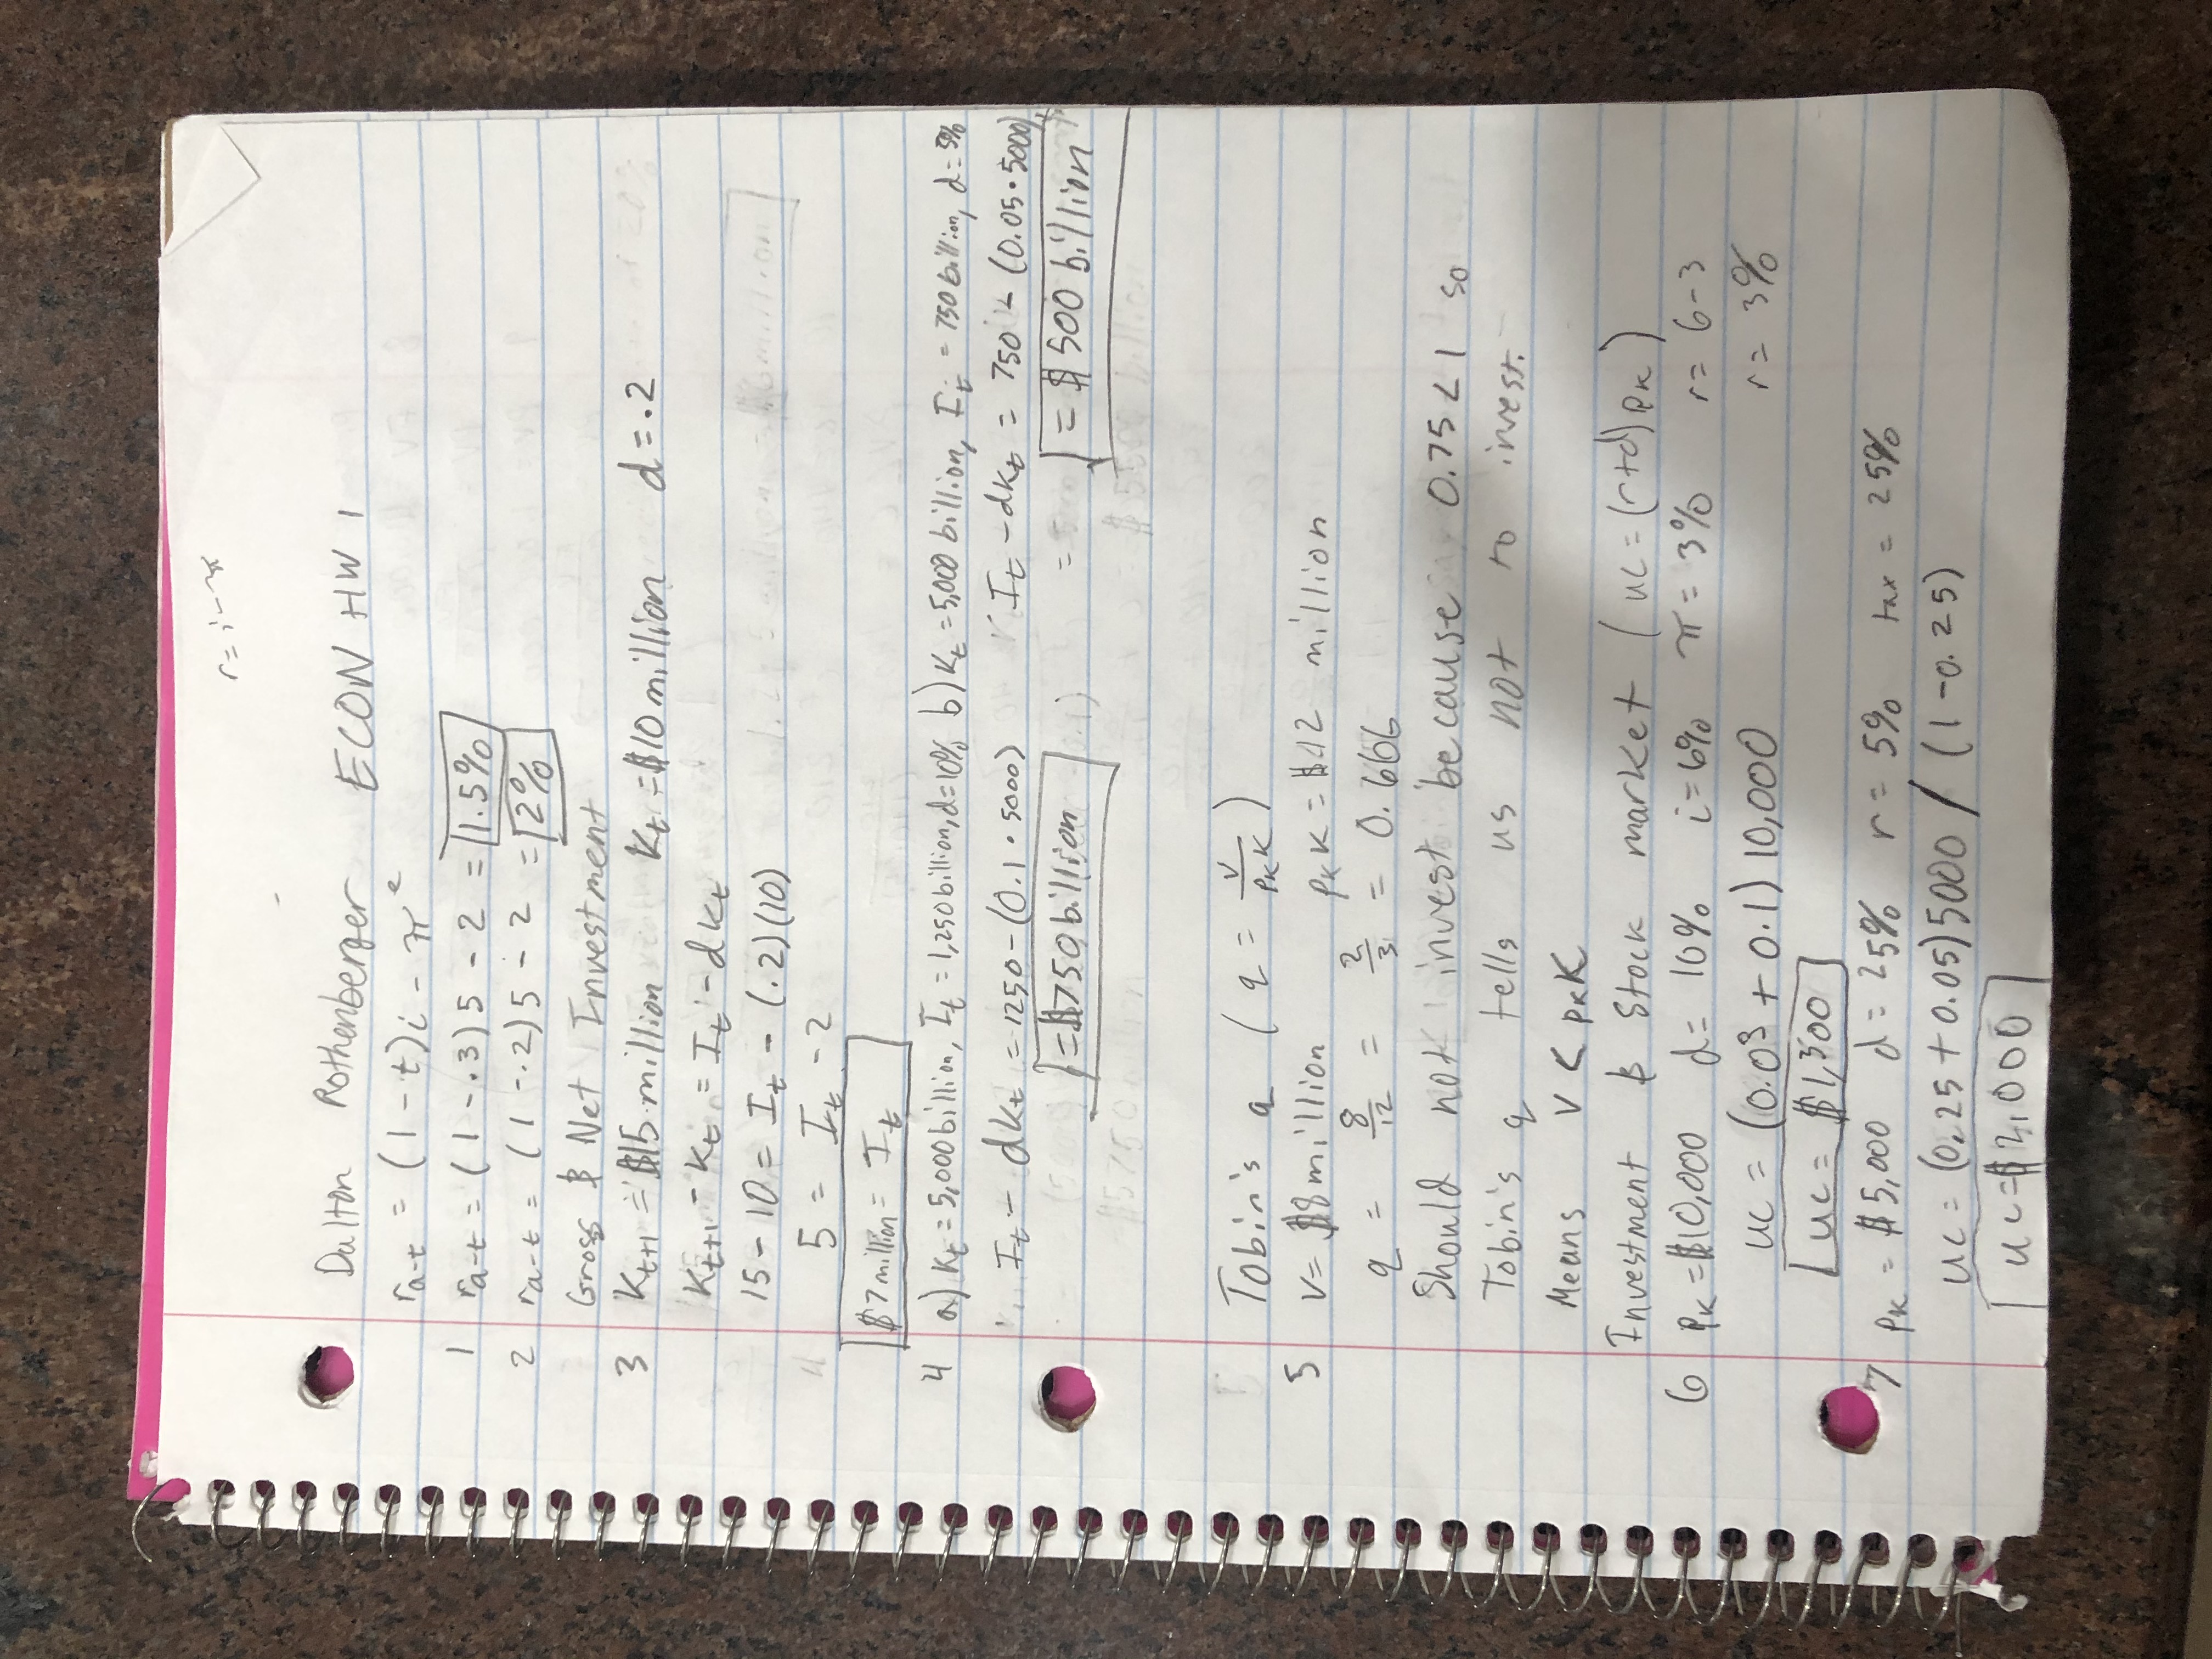 r = i - π
Dalton Rothenberger ECON HW 1
r_{a-t} = (1 - t)i - π^e
1 r_{a-t} = (1 - .3) 5 - 2 = 1.5%
2 r_{a-t} = (1 - .2) 5 - 2 = 2%
Gross & Net Investment
3 K_{t+1} = $15 million K_t = $10 million d = .2
K_{t+1} - K_t = I_t - dK_t
15 - 10 = I_t - (.2)(10)
5 = I_t - 2
$7 million = I_t
4 a) K_t = 5,000 billion, I_t = 1,250 billion, d = 10% b) K_t = 5,000 billion, I_t = 750 billion, d = 5%
I_t - dK_t = 1250 - (0.1 · 5000) I_t - dK_t = 750 - (0.05 · 5000)
= $750 billion = = $500 billion
Tobin's q ( q = V / p_K K )
5 V = $8 million p_K K = $12 million
q = 8/12 = 2/3 = 0.666
Should not invest because 0.75 < 1 so
Tobin's q tells us not to invest.
Means V < p_K K
Investment & Stock market ( uc = (r+d) p_K )
6 p_K = $10,000 d = 10% i = 6% π = 3% r = 6 - 3
uc = (0.03 + 0.1) 10,000 r = 3%
uc = $1,300
7 p_K = $5,000 d = 25% r = 5% tax = 25%
uc = (0.25 + 0.05) 5000 / (1 - 0.25)
uc = $2,000